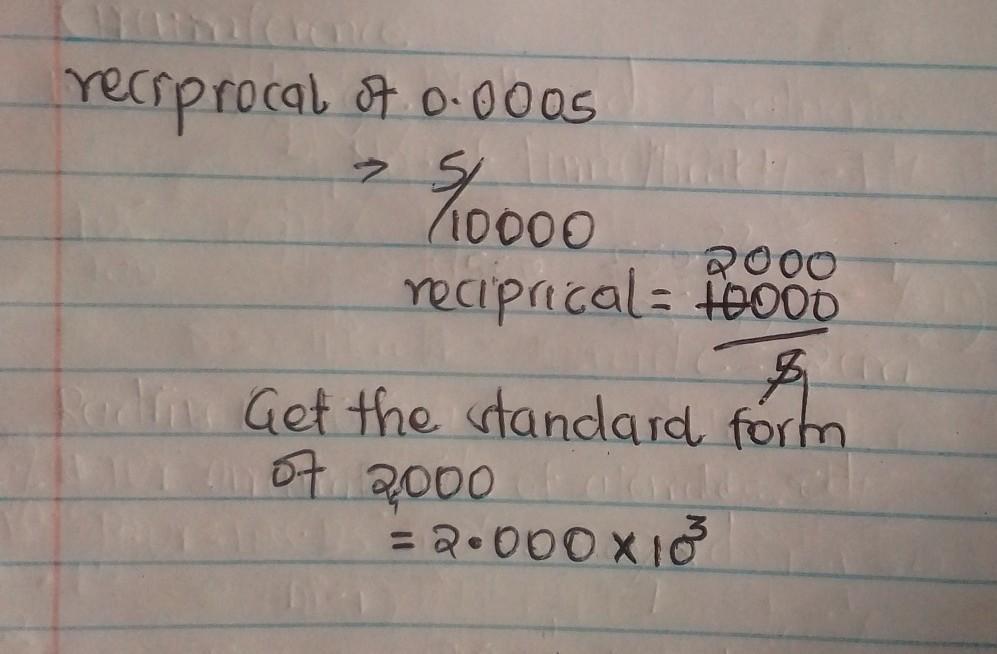 reciprocal of 0.0005
→ 5/10000
2000
reciprical = 10000
5
Get the standard form
of 2000
= 2.000 × 10³